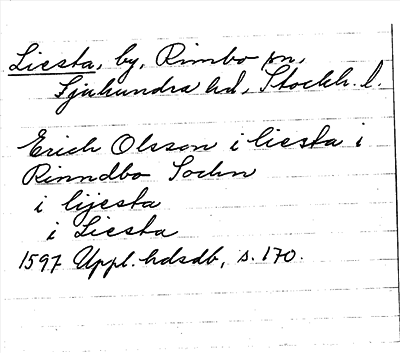 Liesta, by, Rimbo sn,
Sjuhundra hd, Stockh. l.
Erich Olsson i liesta i
Rinndbo Sochn
i lijesta
i Liesta
1597 Uppl. hdsdb, s. 170.